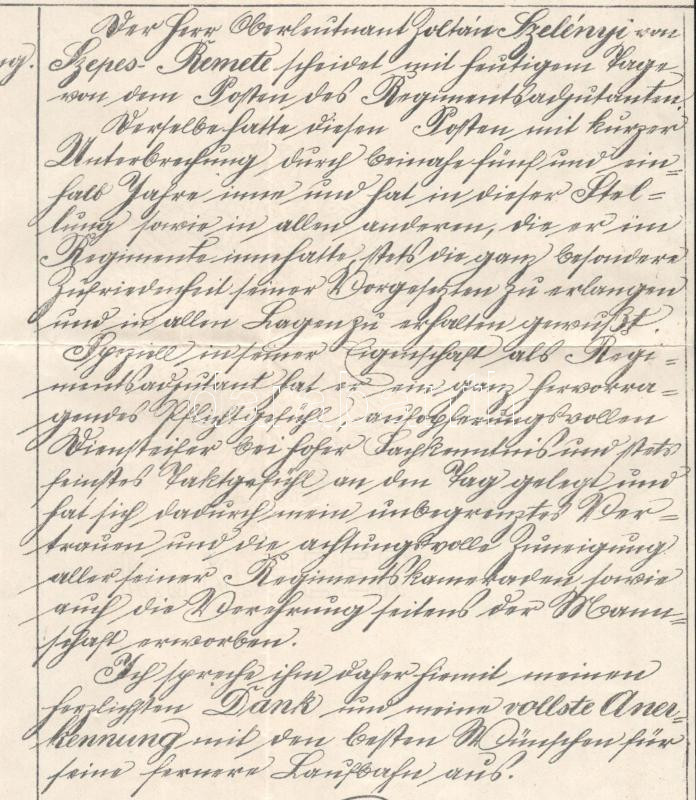 Der Herr Oberleutnant Zoltán Szelényi von
ng. Szepes-Remete scheidet mit heutigem Tage
von dem Posten des Regimentsadjutanten.
Derselbe hatte diesen Posten mit kurzer
Unterbrechung durch beinahe fünf und ein=
halb Jahre inne und hat in dieser Stel=
lung sowie in allen anderen, die er im
Regimente innehatte, stets die ganz besondere
Zufriedenheit seiner Vorgesetzten zu erlangen
und in allen Lagen zu erhalten gewußt.
Speziell in seiner Eigenschaft als Regi=
mentsadjutant hat er ein ganz hervorra=
gendes Pflichtgefühl, aufopferungsvollen
Diensteifer bei hoher Sachkenntnis und stets
feinstes Taktgefühl an den Tag gelegt und
hat sich dadurch mein unbegrenztes Ver=
trauen und die achtungsvolle Zuneigung
aller seiner Regimentskameraden sowie
auch die Verehrung seitens der Mann=
schaft erworben.
Ich spreche ihm daher hiemit meinen
herzlichsten Dank und meine vollste Aner=
kennung mit den besten Wünschen für
seine fernere Laufbahn aus.